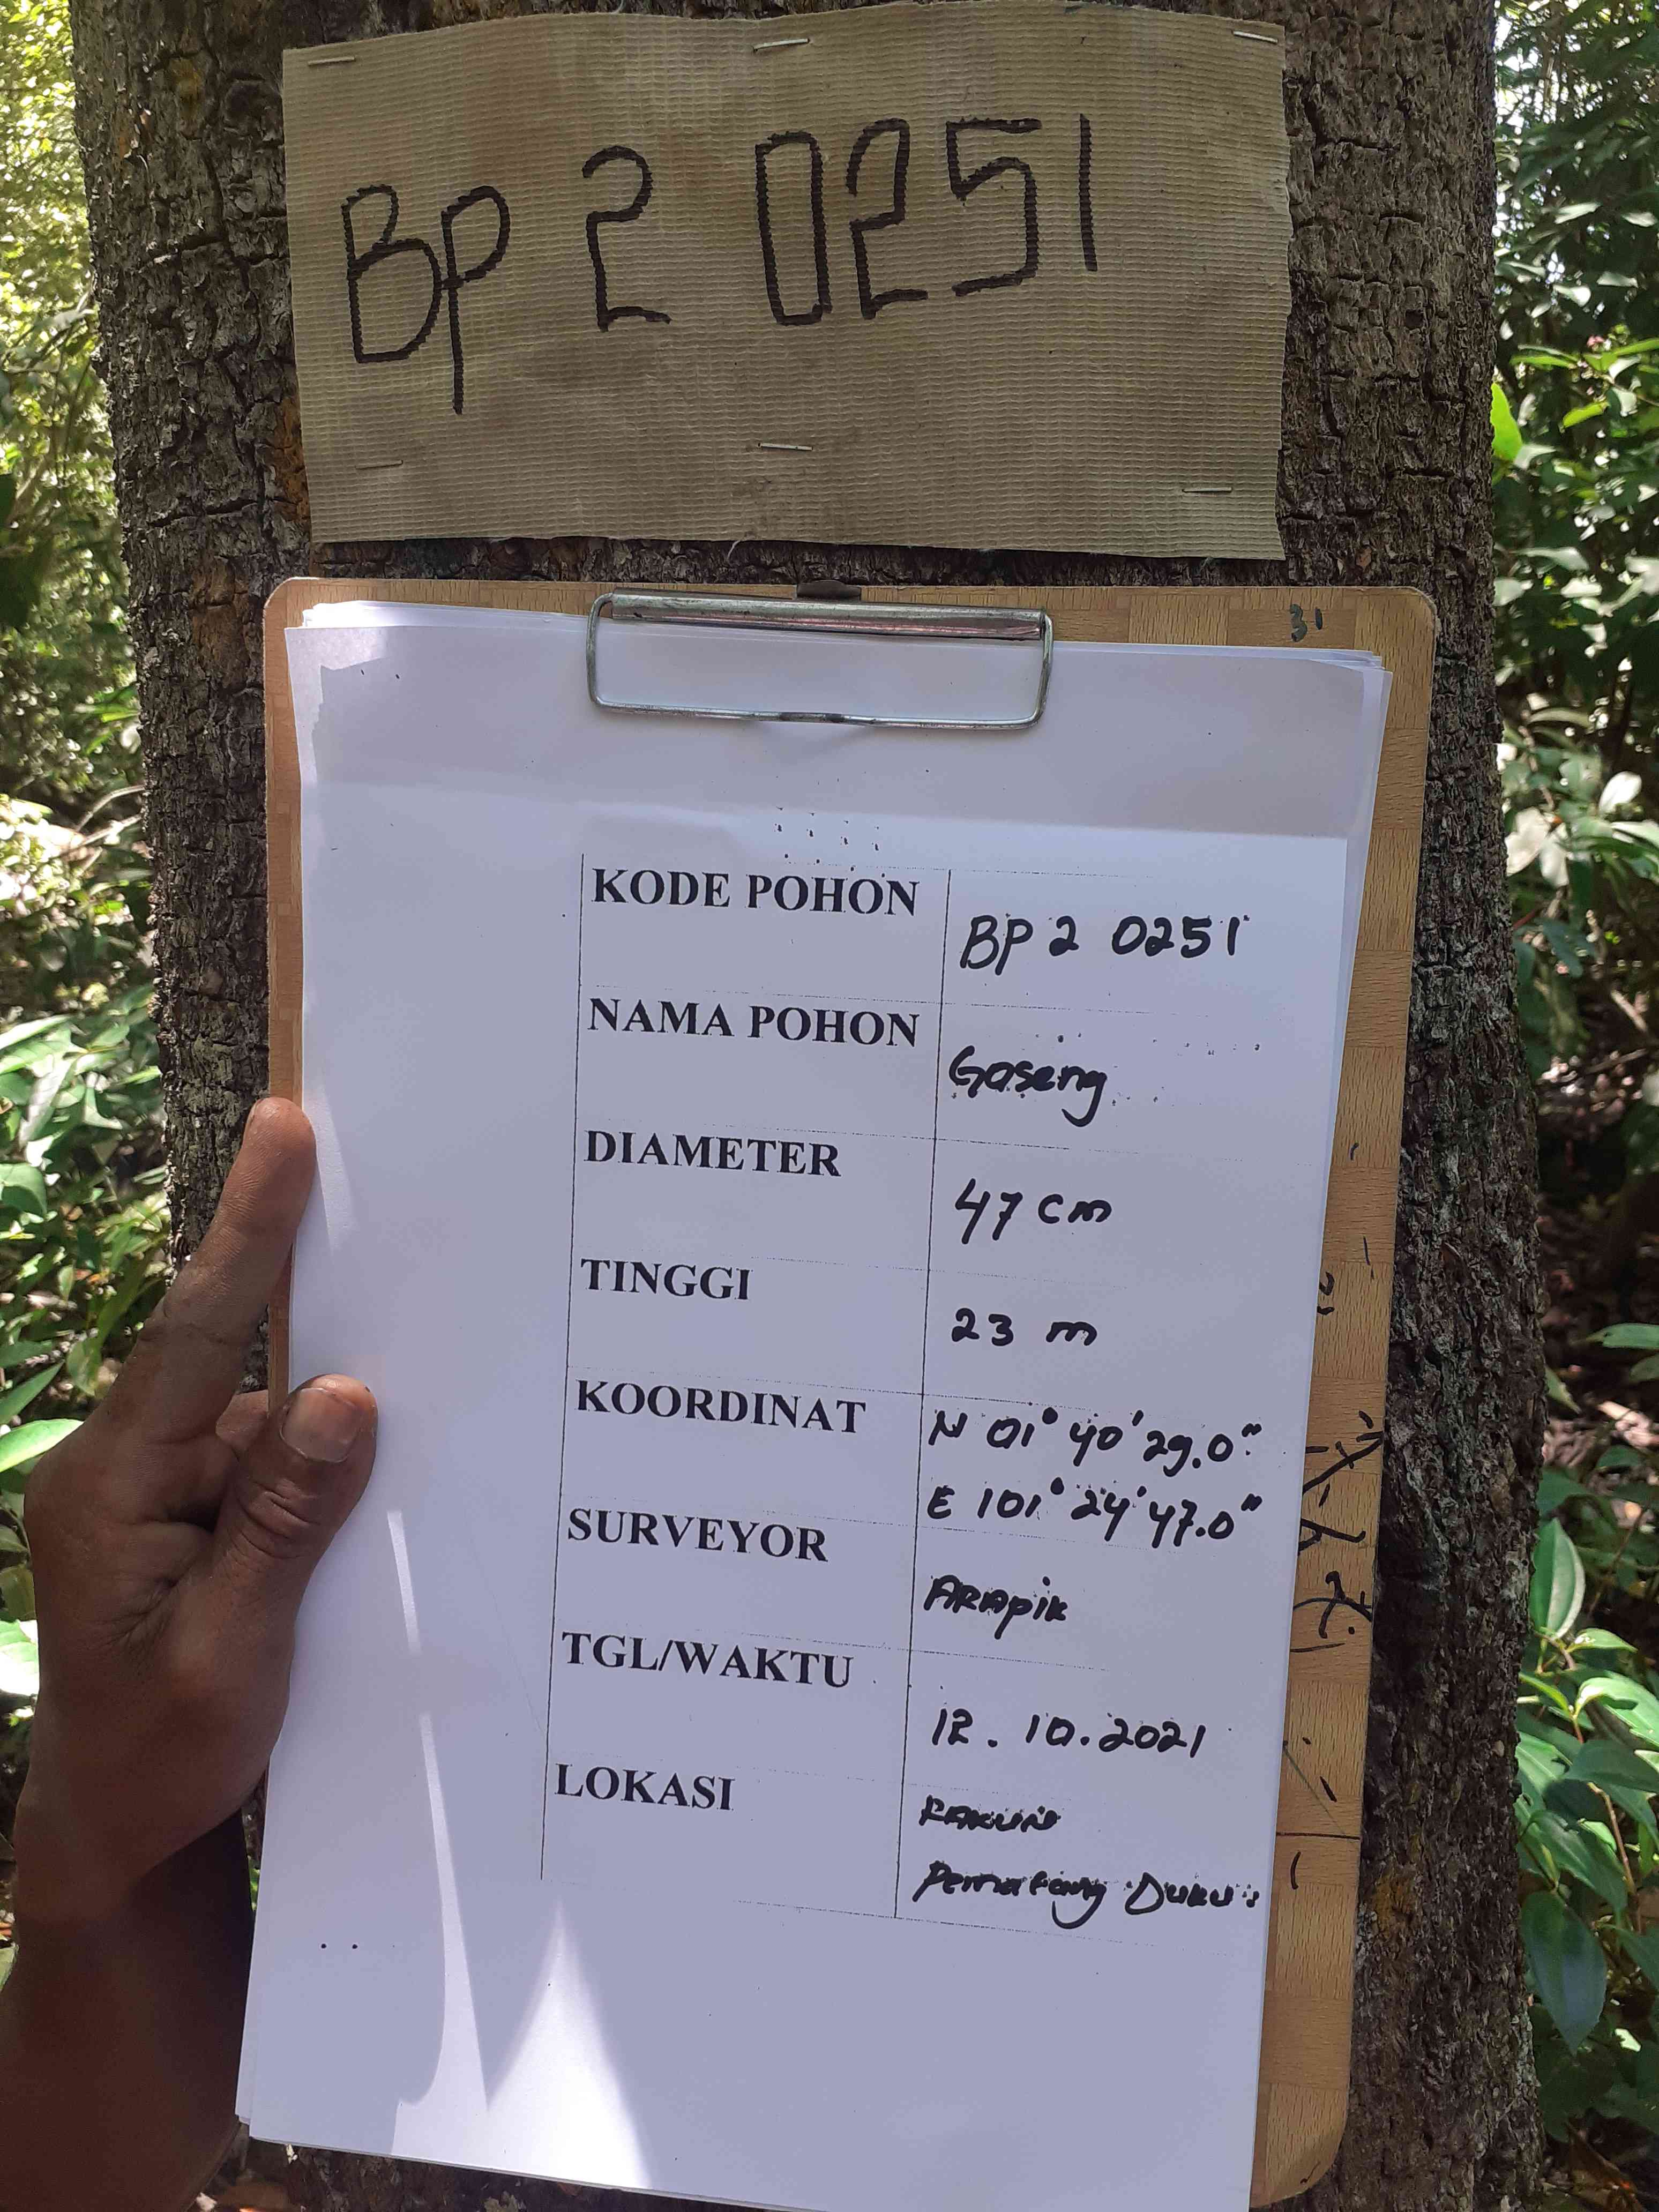 BP 2 0251
31
KODE POHON BP 2 0251
NAMA POHON Gaseng
DIAMETER 47 cm
TINGGI 23 m
KOORDINAT N 01° 40' 29.0"
E 101° 24' 47.0"
SURVEYOR ARApik
TGL/WAKTU 12.10.2021
LOKASI
Pematang Duku